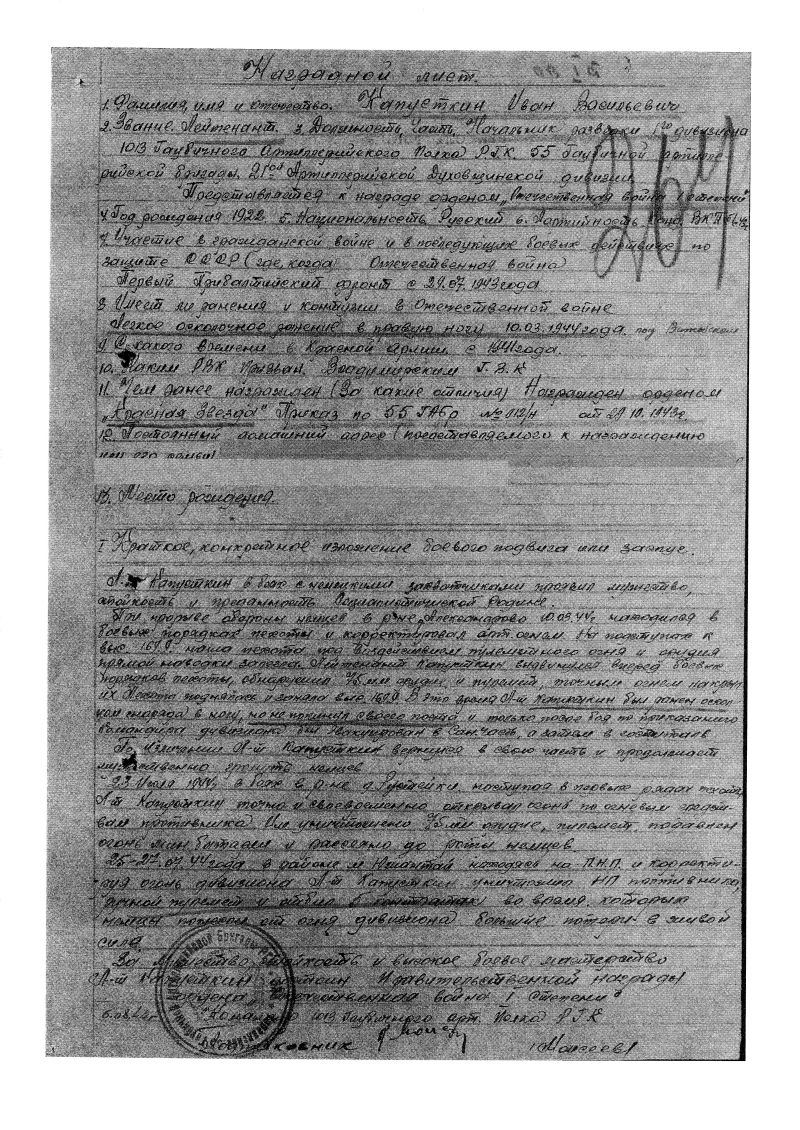 Наградной лист.
1. Фамилия, имя и отечество. Капусткин Иван Васильевич
2. Звание. Лейтенант. 3. Должность, часть. Начальник разведки 1го дивизиона
1013 Гаубичного Артиллерийского Полка Р.Г.К. 55 Гаубичной артилле-
рийской бригады, 21ой Артиллерийской Духовщинской дивизии
Представляется к награде орденом „Отечественная война 1 степени"
4. Год рождения 1922 5. Национальность Русский 6. Партийность ВКП(б)
7. Участие в гражданской войне и в последующих боевых действиях по
защите СССР (где, когда) Отечественная война
Первый Прибалтийский фронт с 29.07.1943 года
8. Имеет ли ранения и контузии в Отечественной войне
Легкое осколочное ранение в правую ногу 10.03.1944 года. под Витебском
9. С какого времени в Красной Армии. с 1941 года.
10. Каким РВК призван. Владимирским Г.В.К
11. Чем ранее награжден (За какие отличия) Награжден орденом
„Красная Звезда" Приказ по 55 ГАБр № 012/н от 29.10.1943г
12. Постоянный домашний адрес (представляемого к награждению
или его семьи)
13. Место рождения.
I Краткое, конкретное изложение боевого подвига или заслуг.
Л-т Капусткин в боях с немецкими захватчиками проявил мужество,
стойкость и преданность Социалистической Родине.
При прорыве обороны немцев в р-не Александрово 10.03.44г. находился в
боевых порядках пехоты и корректировал арт. огнем. На подступах к
выс. 167.9 наша пехота под воздействием пулеметного огня и орудия
прямой наводки залегла. Лейтенант Капусткин выдвинулся вперед боевых
порядков пехоты, обнаружил 75 мм орудие и пулемет, точным огнем накрыл
их. Пехота поднялась и заняла выс. 167.9 В это время Л-т Капусткин был ранен оскол-
ком снаряда в ногу, но не покинул своего поста и только после боя по приказанию
командира дивизиона был эвакуирован в Санчасть, а затем в госпиталь
По излечении Л-т Капусткин вернулся в свою часть и продолжает
мужественно громить немцев
23 Июля 1944г. в боях в р-не д. наступая в первых рядах пехоты,
Л-т Капусткин точно и своевременно открывал огонь по огневым средст-
вам противника. Им уничтожено 75 мм орудие, пулемет, подавлен
огонь мин батареи и рассеяно до роты немцев.
25-27.07.44 года в районе м. находясь на П.Н.П. и корректи-
руя огонь дивизиона Л-т Капусткин уничтожил НП противника,
ручной пулемет и отбил 5 контратак во время которых
немцы понесли от огня дивизиона большие потери в живой
силе
За мужество, стойкость и высокое боевое мастерство
Л-т Капусткин достоин Правительственной награды
ордена „Отечественная война 1 степени"
Командир 1013 Гаубичного арт. Полка Р.Г.К
Подполковник (Моисеев)
264